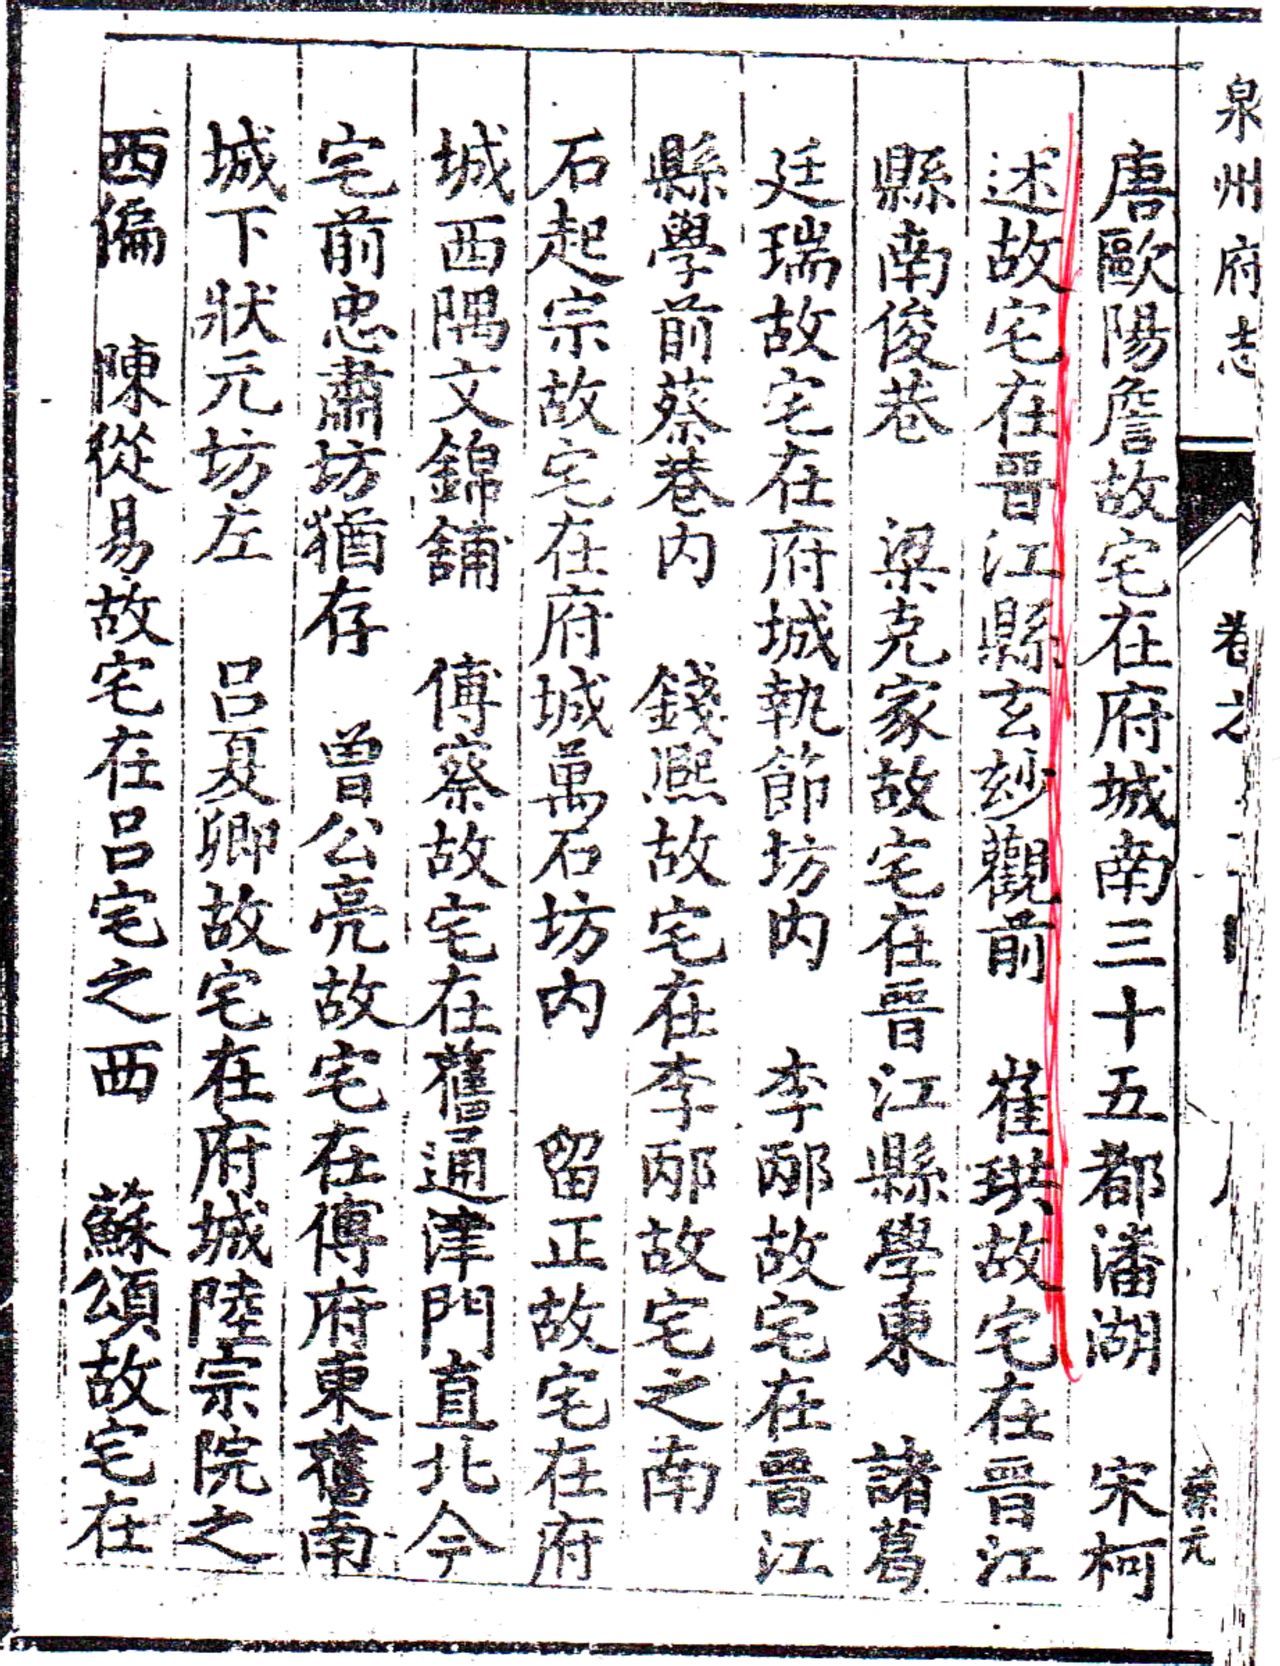 泉州府志
卷之
蔡元
唐歐陽詹故宅在府城南三十五都潘湖　宋柯
述故宅在晉江縣玄玅觀前　崔珙故宅在晉江
縣南俊巷　梁克家故宅在晉江縣學東　諸葛
廷瑞故宅在府城執節坊內　李邴故宅在晉江
縣學前蔡巷內　錢熈故宅在李邴故宅之南
石起宗故宅在府城萬石坊內　留正故宅在府
城西隅文錦舖　傅察故宅在舊通津門直北今
宅前忠肅坊猶存　曾公亮故宅在傅府東舊南
城下狀元坊左　吕夏卿故宅在府城陸宗院之
西偏　陳從易故宅在吕宅之西　蘇頌故宅在